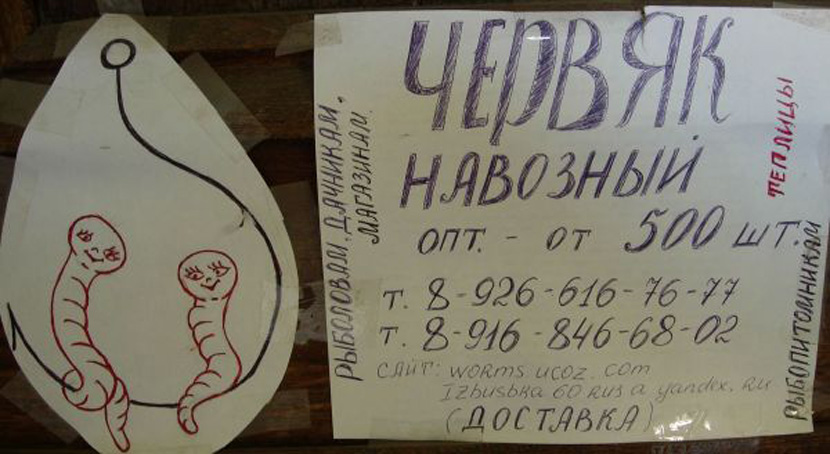 ЧЕРВЯК
НАВОЗНЫЙ
ОПТ. - ОТ 500 ШТ.
т. 8-926-616-76-77
т. 8-916-846-68-02
САЙТ: worms.ucoz.com
Izbushka 60 RUS a yandex.ru
(ДОСТАВКА)
РЫБОЛОВАМ, ДАЧНИКАМ,
МАГАЗИНАМ.
ТЕПЛИЦЫ
РЫБОПИТОМНИКАМ